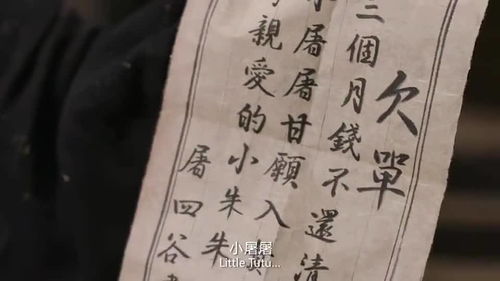 欠單
三個月錢不還清
小屠屠甘願入
親愛的小朱朱
屠四谷
小屠屠
Little Tutu...